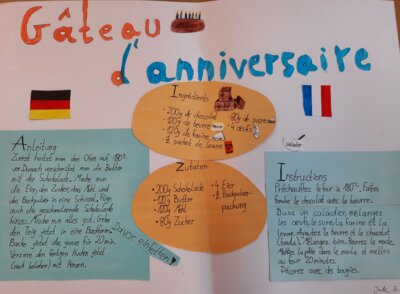 Gâteau
d'anniversaire
Ingrédients
• 200g de chocolat
• 120g de beurre
• 120g de farine
• 1 sachet de levure
• 80g de sucre
• 4 œufs
Saladier
Anleitung
Zuerst heizt man den Ofen auf 180°
vor. Danach verschmilzt man die Butter
mit der Schokolade. Mache nun
die Eier, den Zucker, das Mehl und
das Backpulver in eine Schüssel. Füge
auch die geschmolzene Schokolade
hinzu. Mische nun alles gut. Gebe
den Teig jetzt in eine Backform.
Backe jetzt das ganze für 20 min.
Verziere den fertigen Kuchen jetzt
mit Kerzen.
Zutaten
• 200g Schokolade
• 120g Butter
• 120g Mehl
• 80g Zucker
• 4 Eier
• 1 Backpulver-
packung
Instructions
Préchauffez le four à 180°C. Faites
fondre le chocolat avec le beurre.
Dans un saladier, mélangez
les œufs, le sucre, la farine et la
levure. Ajoutez le beurre et le chocolat
(fondu). Mélangez bien. Beurrez le moule.
Mettez la pâte dans le moule et mettez
au four 20 minutes.
Décorez avec des bougies.